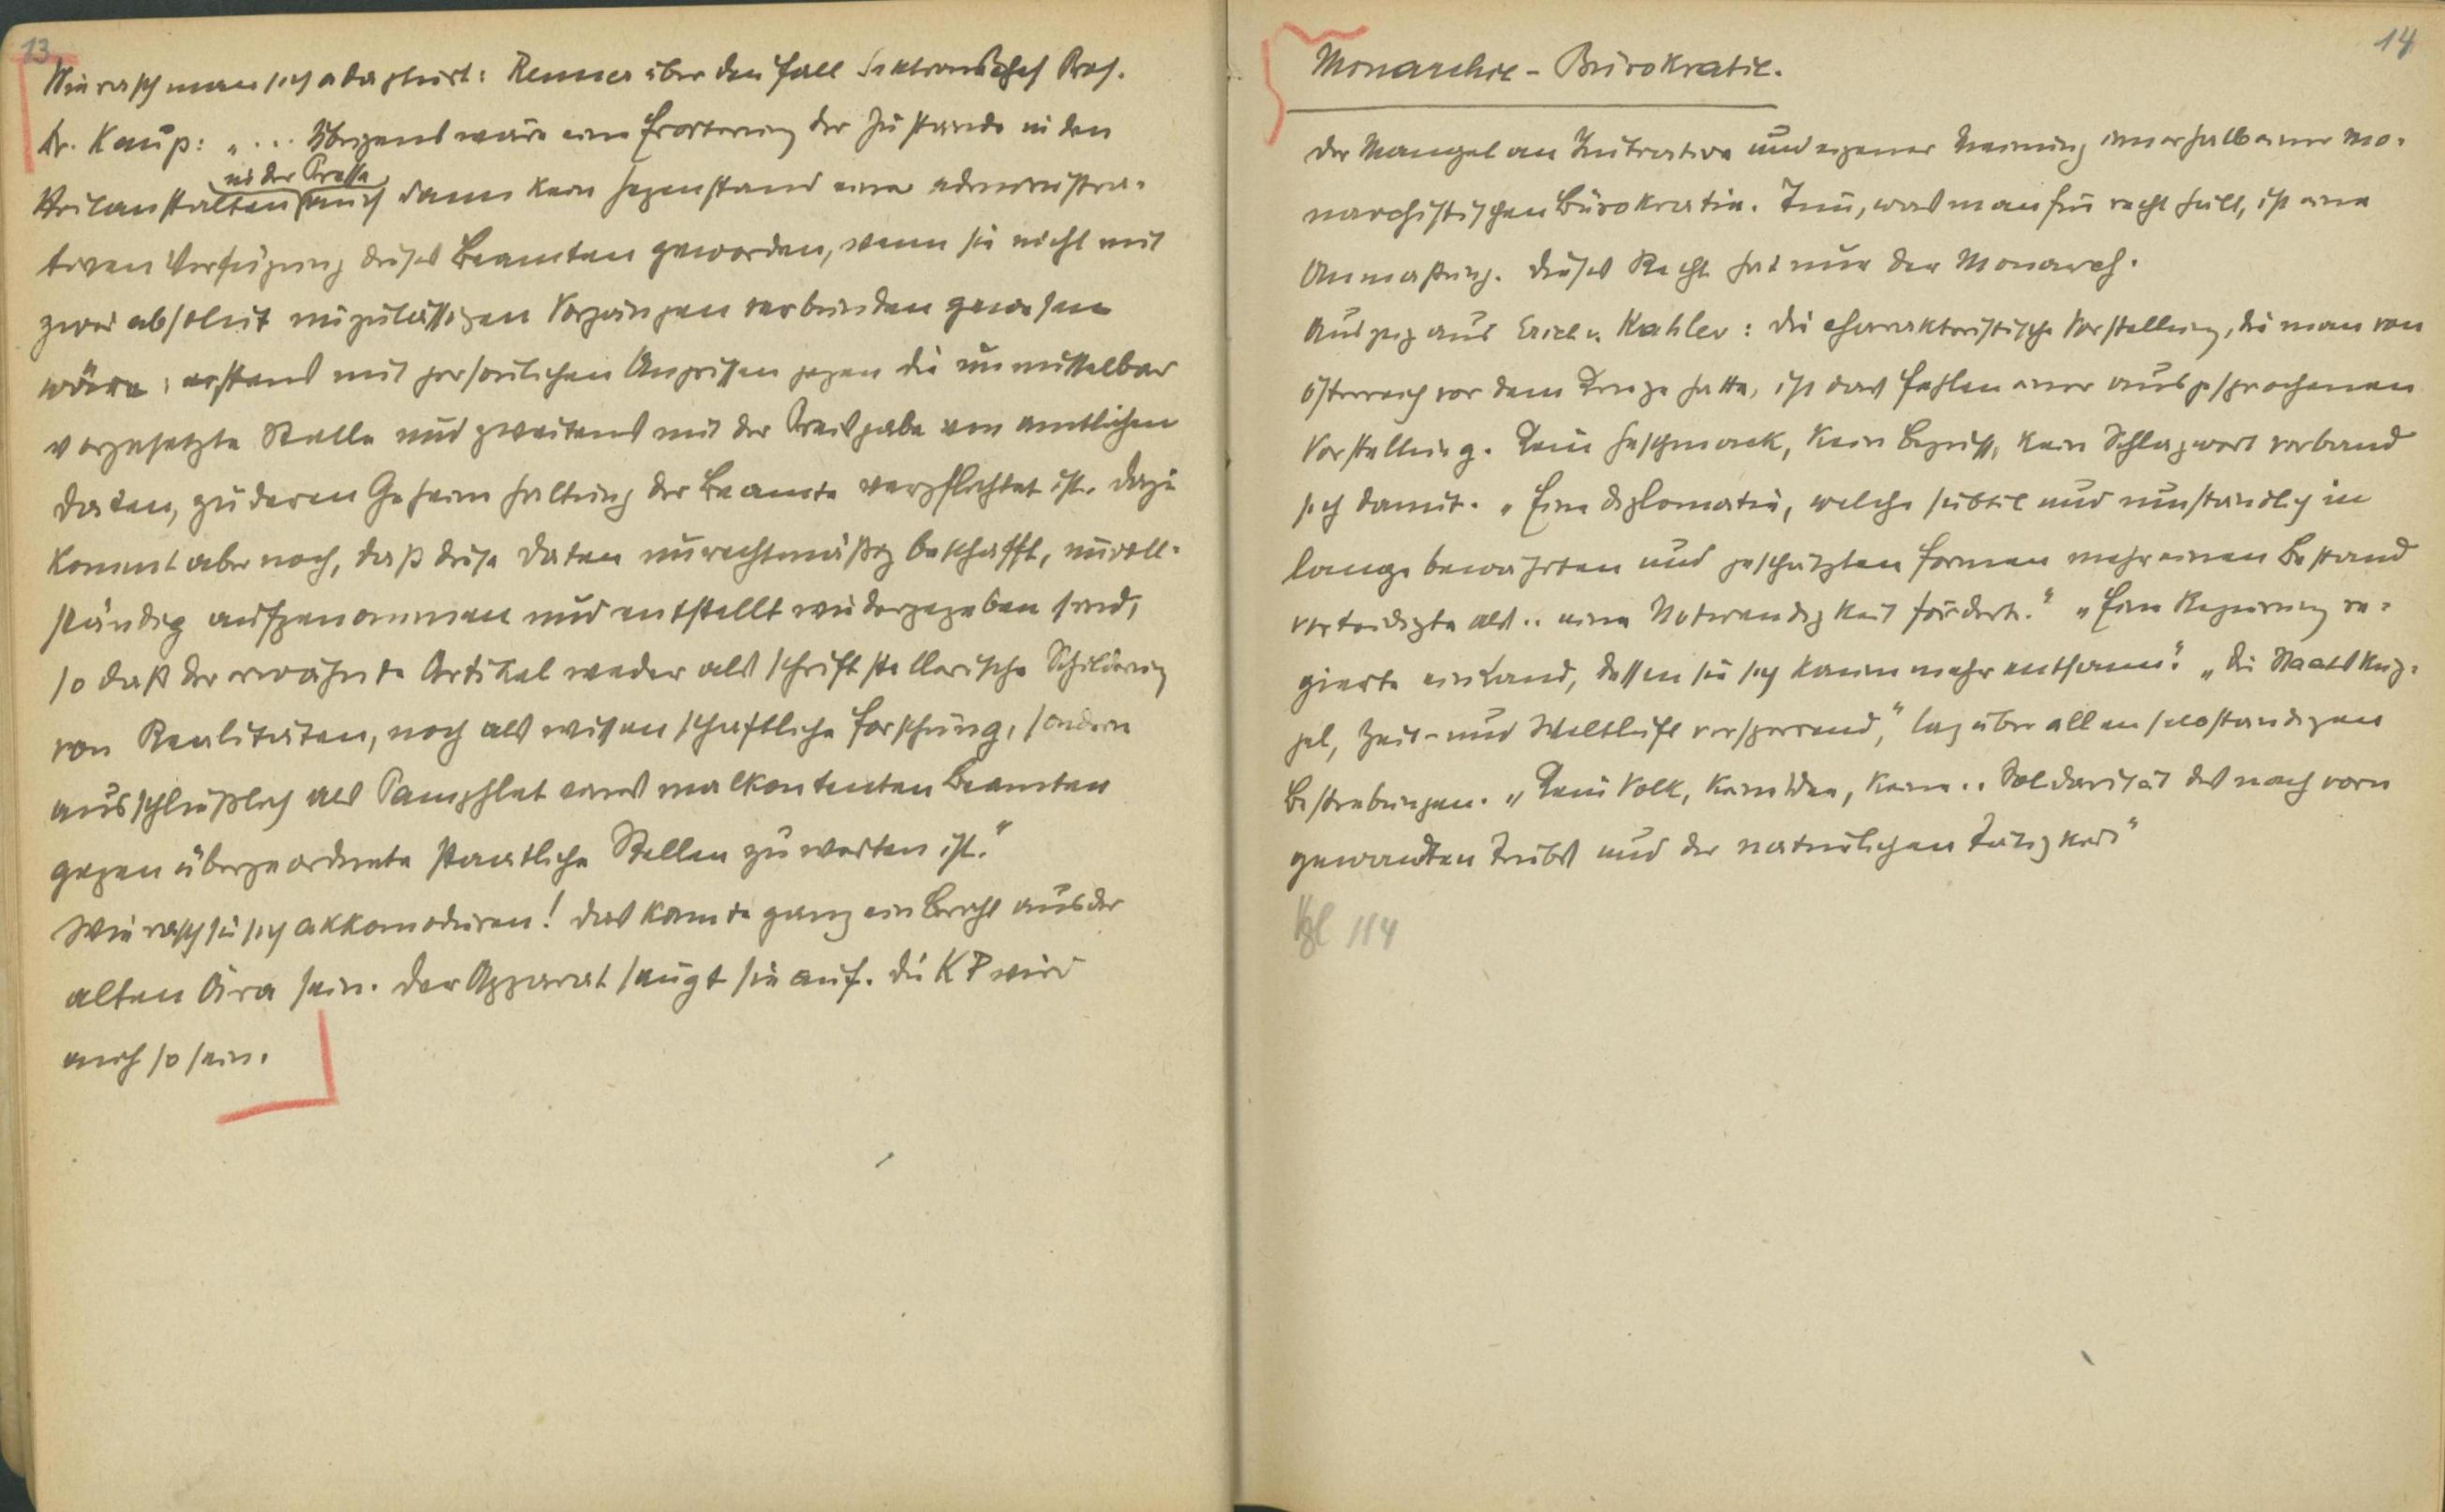 13
Wie rasch man sich adaptiert: Renner über den Fall Sektionschef Prof.
Dr. Kaup: „... Übrigens wäre eine Erörterung der Zustände in den
in der Presse
Heilanstalten auch dann kein Gegenstand einer administra-
tiven Verfügung dieses Beamten geworden, wenn sie nicht mit
zwei absolut unzulässigen Vorgängen verbunden gewesen
wäre: erstens mit persönlichen Angriffen gegen die unmittelbar
vorgesetzte Stelle und zweitens mit der Preisgabe von amtlichen
Daten, zu deren Geheimhaltung der Beamte verpflichtet ist. Dazu
kommt aber noch, daß diese Daten unrechtmäßig beschafft, unvoll-
ständig aufgenommen und entstellt wiedergegeben sind,
so daß der erwähnte Artikel weder als schriftstellerische Schilderung
von Realitäten, noch als wissenschaftliche Forschung, sondern
ausschließlich als Pamphlet eines malkontenten Beamten
gegen übergeordnete staatliche Stellen zu werten ist."
Wie rasch sie sich akkomodieren! Das könnte ganz ein Bericht aus der
alten Ära sein. Der Apparat saugt sie auf. Die KP wird
auch so sein.
14
Monarchie - Bürokratie.
Der Mangel an Initiative und eigener Meinung innerhalb einer mo-
narchistischen Bürokratie. Tun, was man für recht hält, ist eine
Anmaßung. Dieses Recht hat nur der Monarch.
Auszug aus Erich v. Kahler: Die charakteristische Vorstellung, die man von
Österreich vor dem Kriege hatte, ist das Fehlen einer ausgesprochenen
Vorstellung. Kein Geschmack, kein Begriff, kein Schlagwort verband
sich damit. „Eine Diplomatie, welche subtil und umständlich in
lange bewährten und geschätzten Formen mehr einen Bestand
verteidigte als .. eine Notwendigkeit förderte." „Eine Regierung re-
gierte ein Land, dessen sie sich kaum mehr entsann." „Die Staatskug-
gel, Zeit- und Weltluft versperrend," lag über allen selbständigen
Bestrebungen. „Kein Volk, kein Idee, keine .. Solidarität des nach vorn
gewandten Triebs und der natürlichen Tätigkeit"
Vgl 114